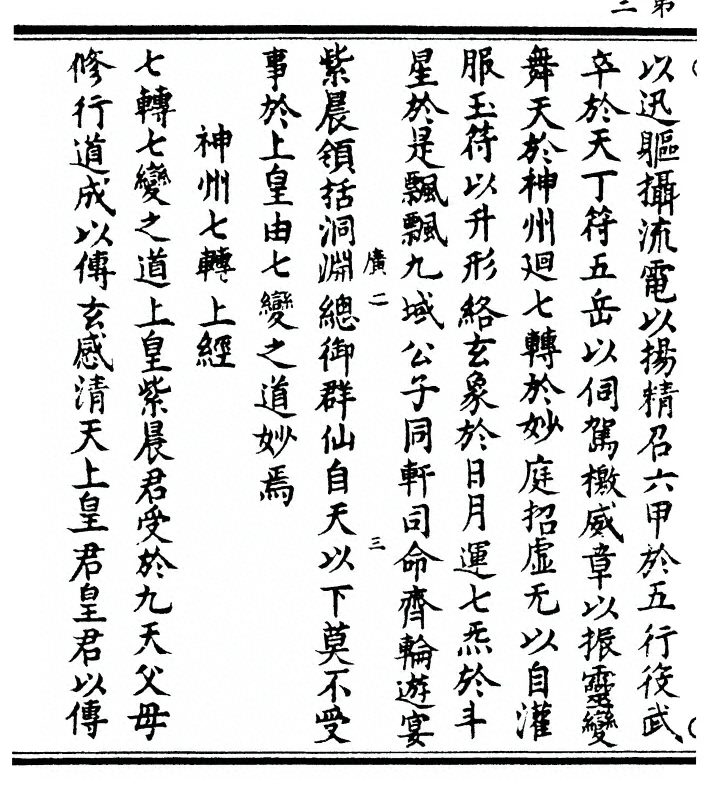 第二
以迅驅攝流電以揚精召六甲於五行役武
卒於天丁符五岳以伺駕檄威章以振靈變
舞天於神州廻七轉於妙庭招虛无以自灌
服玉符以升形絡玄象於日月運七炁於斗
星於是飄飄九域公子同軒司命齊輪遊宴
廣二 三
紫晨領括洞淵總御群仙自天以下莫不受
事於上皇由七變之道妙焉
神州七轉上經
七轉七變之道上皇紫晨君受於九天父母
修行道成以傳玄感清天上皇君皇君以傳